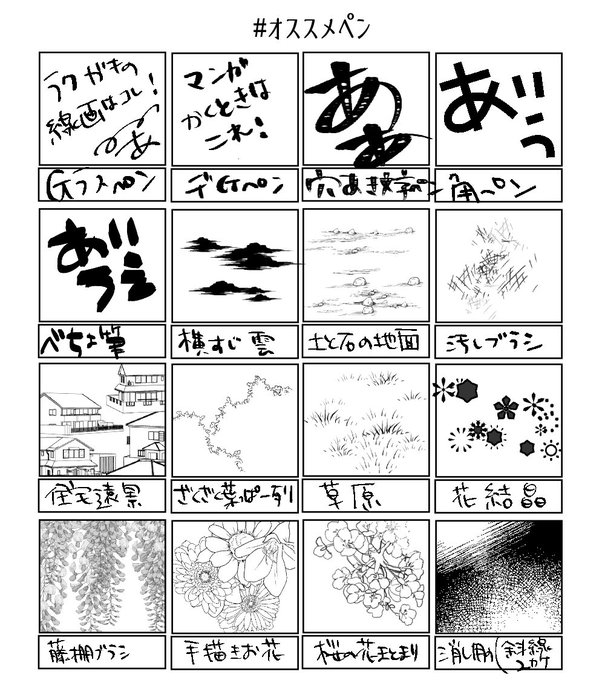 #オススメペン
ラクガキの
線画はコレ!
あ
マンガ
かくときは
これ!
あ
あ
あいう
Gラスペン
デGペン
穴あき筆ペン
角ペン
あいうえ
べちょ筆
横すじ雲
土と石の地面
汚しブラシ
住宅遠景
ざくざく葉っぱ一列
草原
花結晶
藤棚ブラシ
手描きお花
桜の花まとまり
消し用(斜線
2カケ